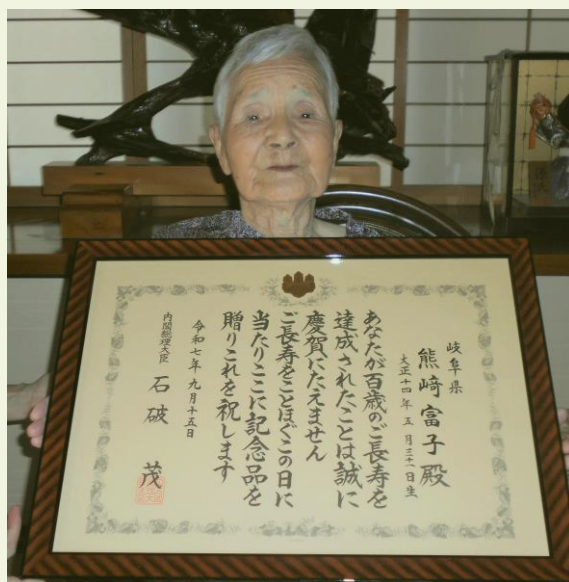 岐阜県
熊﨑富子殿
大正十四年五月三十一日生
あなたが百歳のご長寿を
達成されたことは誠に
慶賀にたえません
ご長寿をことほぐこの日に
当たりここに記念品を
贈りこれを祝します
令和七年九月十五日
内閣総理大臣 石破 茂